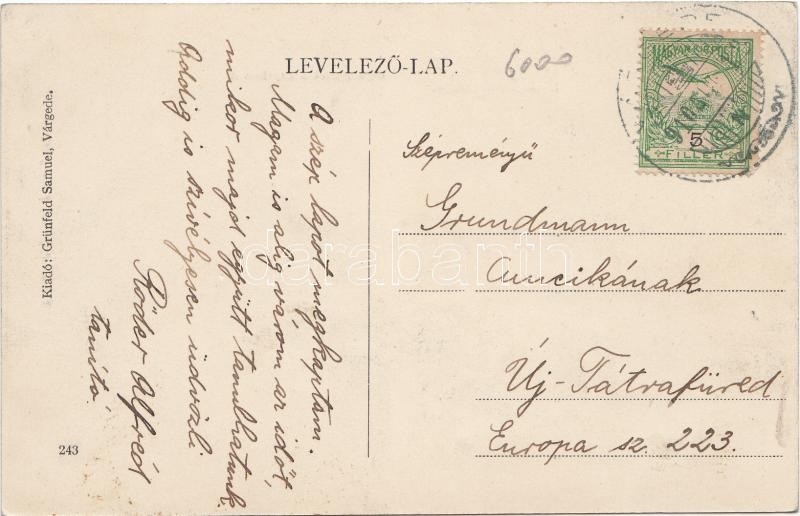 LEVELEZŐ-LAP.
6000
MAGYAR KIR. POSTA
5
FILLÉR
A szép lapot megkaptam.
Magam is alig várom az időt,
mikor majd együtt tanulhatunk.
Addig is szívélyesen üdvözli
Röder Alfréd
tanító.
Szépreményű
Grundmann
Anncikának
Új-Tátrafüred
Europa sz. 223.
Kiadó: Grünfeld Samuel, Várgede.
243
darabanth